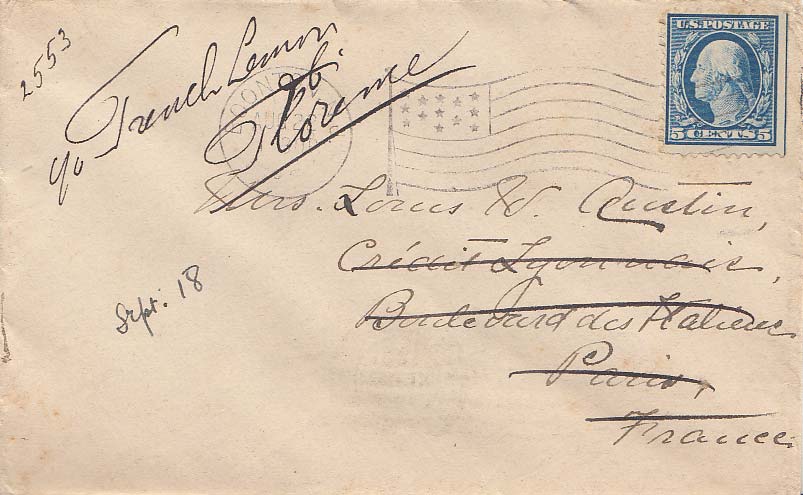 2553
c/o French Lemon
Florence
U.S. POSTAGE
5 CENTS 5
AUG 2
Mrs. Louis W. Austin,
Crédit Lyonnais,
Boulevard des Italiens
Paris,
France.
Sept. 18